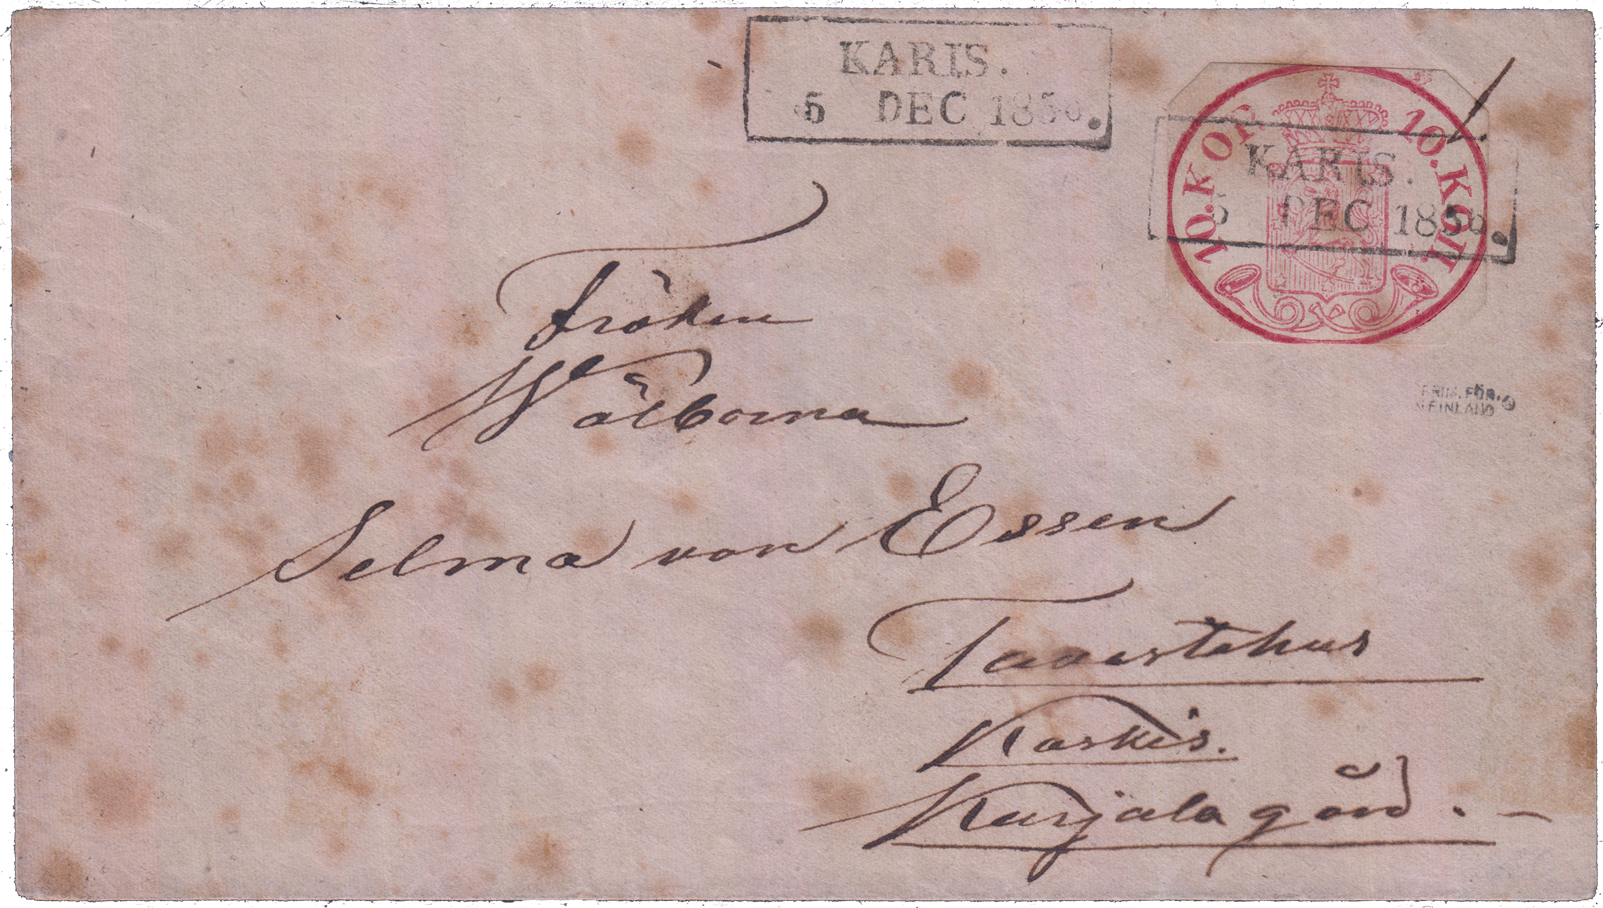 KARIS.
5 DEC 1856.
10. KOP. 10. KOP.
KARIS.
5 DEC 1856.
Fröken
Wälborna
Selma von Essen
Tavestehus
Karkis.
Karjala gård. –
FRIM. FÖR.
FINLAND